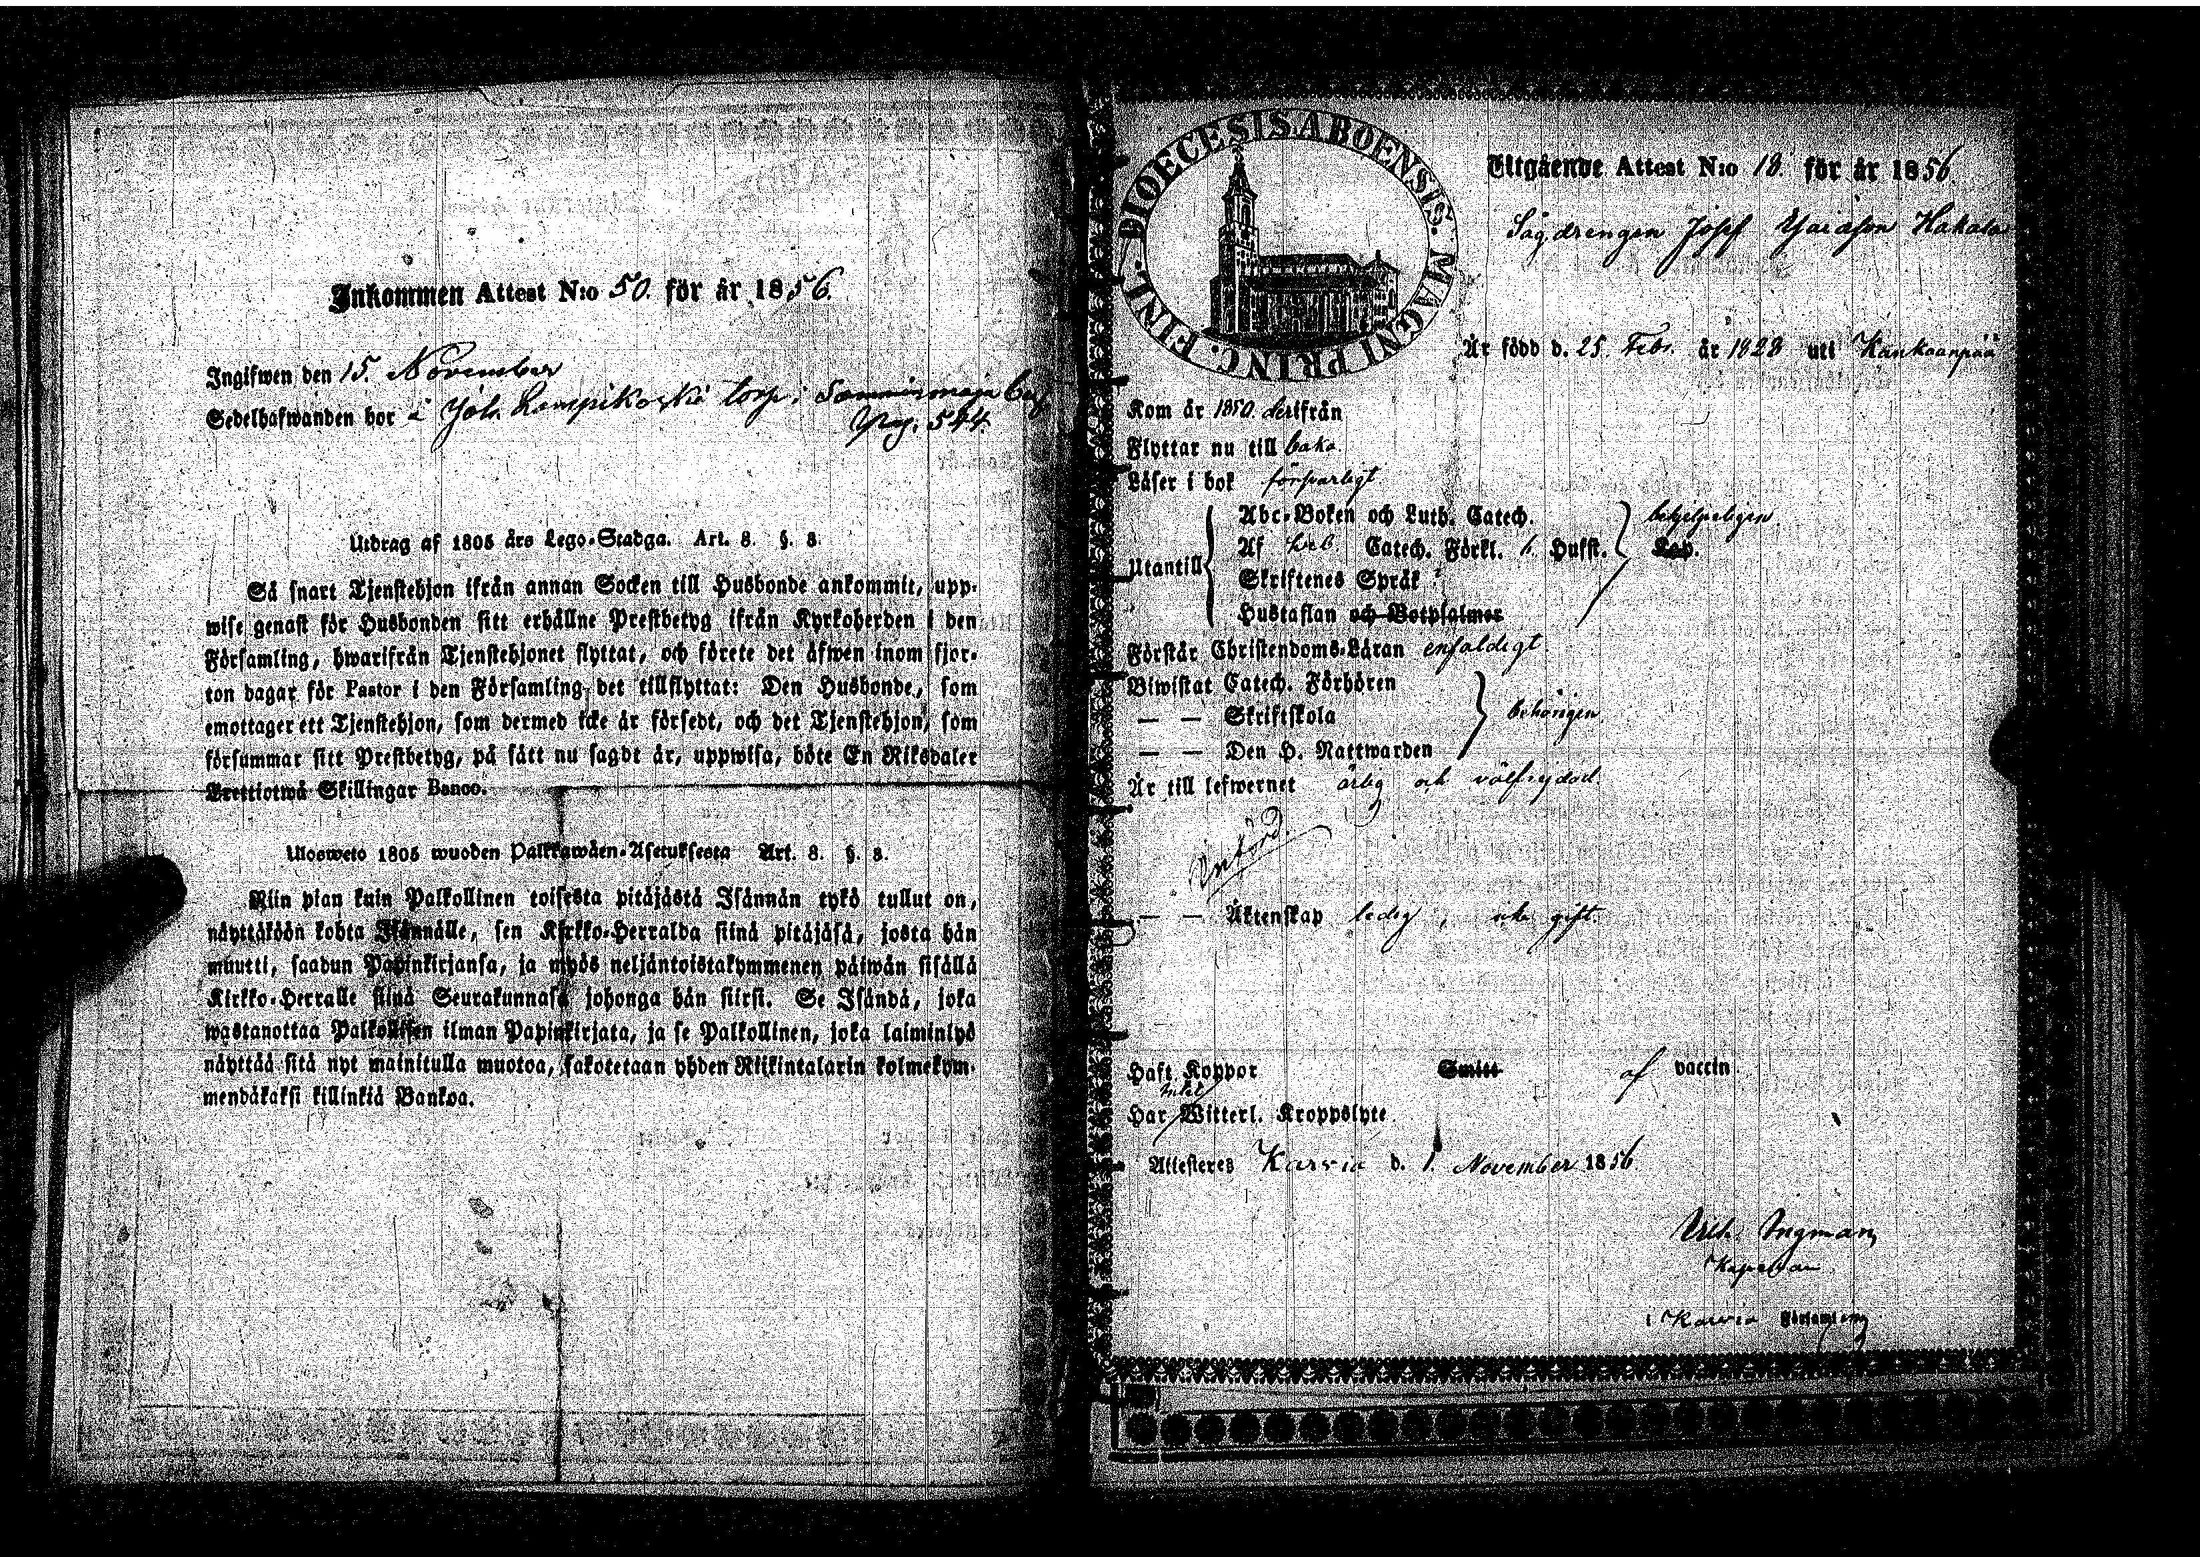 Inkommen Attest N:o 50. för år 1856.
Ingifwen den 15. November
Sedelhafwanden bor i Joh. Lampikoski torp i
Pag. 544.
Utdrag af 1805 års Lego-Stadga. Art. 8. §. 8.
Så snart Tjenstehjon ifrån annan Socken till Husbonde ankommit, upp-
wise genast för Husbonden sitt erhållne Prestbetyg ifrån Kyrkoherden i den
Församling, hwarifrån Tjenstehjonet flyttat, och förete det äfwen inom fjor-
ton dagar för Pastor i den Församling det tillflyttat: Den Husbonde, som
emottager ett Tjenstehjon, som dermed icke är försedt, och det Tjenstehjon, som
försummar sitt Prestbetyg, på sätt nu sagdt är, uppwisa, böte En Riksdaler
Trettiotwå Skillingar Banco.
Ulosweto 1805 wuoden Palkkawäen-Asetuksesta Art. 8. §. 8.
Niin pian kuin Palkollinen toisesta pitäjästä Isännän tykö tullut on,
näyttäköön kohta Isännälle, sen Kirkko-Herralda siinä pitäjäsä, josta hän
muutti, saadun Papinkirjansa, ja myös neljäntoistakymmenen päiwän sisällä
Kirkko-Herralle siinä Seurakunnasa johonga hän siirsi. Se Isändä, joka
wastanottaa Palkollisen ilman Papinkirjata, ja se Palkollinen, joka laiminlyö
näyttää sitä nyt mainitulla muotoa, sakotetaan yhden Riikintalarin kolmekym-
mendäkaksi killinkiä Bankoa.
DIOECESIS ABOENSIS. MAGNI PRINC. FINL.
Utgående Attest N:o 18. för år 1856.
Sågdrengen Josef Hakala
Är född d. 25. Febr. år 1828 uti Kankaanpää
Kom år 1850 derifrån
Flyttar nu till baka.
Läser i bok försvarligt
Utantill
Abc-Boken och Luth. Catech. behjelpeligen
Af Catech. Förkl. 6. Hufst.
Skriftenes Språk
Hustaflan och Botpsalmer
Förstår Christendoms-Läran enfaldigt.
Biwistat Catech. Förhören
— — Skriftskola behörigen
— — Den H. Nattwarden
Är till lefwernet ärlig och välfrejdad.
Införd.
— — Äktenskap ledig, icke gift.
Haft Koppor Smitt af vaccin
intet
Har Witterl. Kroppslyte.
Attesteras Karvia d. 1. November 1856
Vilh. Ingman
Kapellan
i Karvia Församling